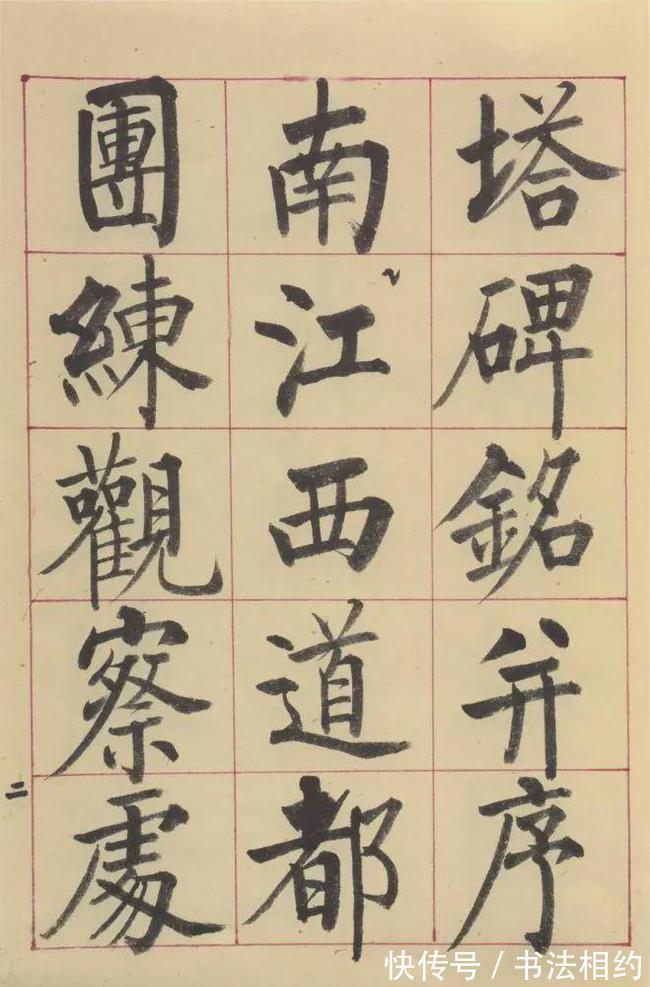 塔碑銘并序
南江西道都
團練觀察處
二
快传号 / 书法相约